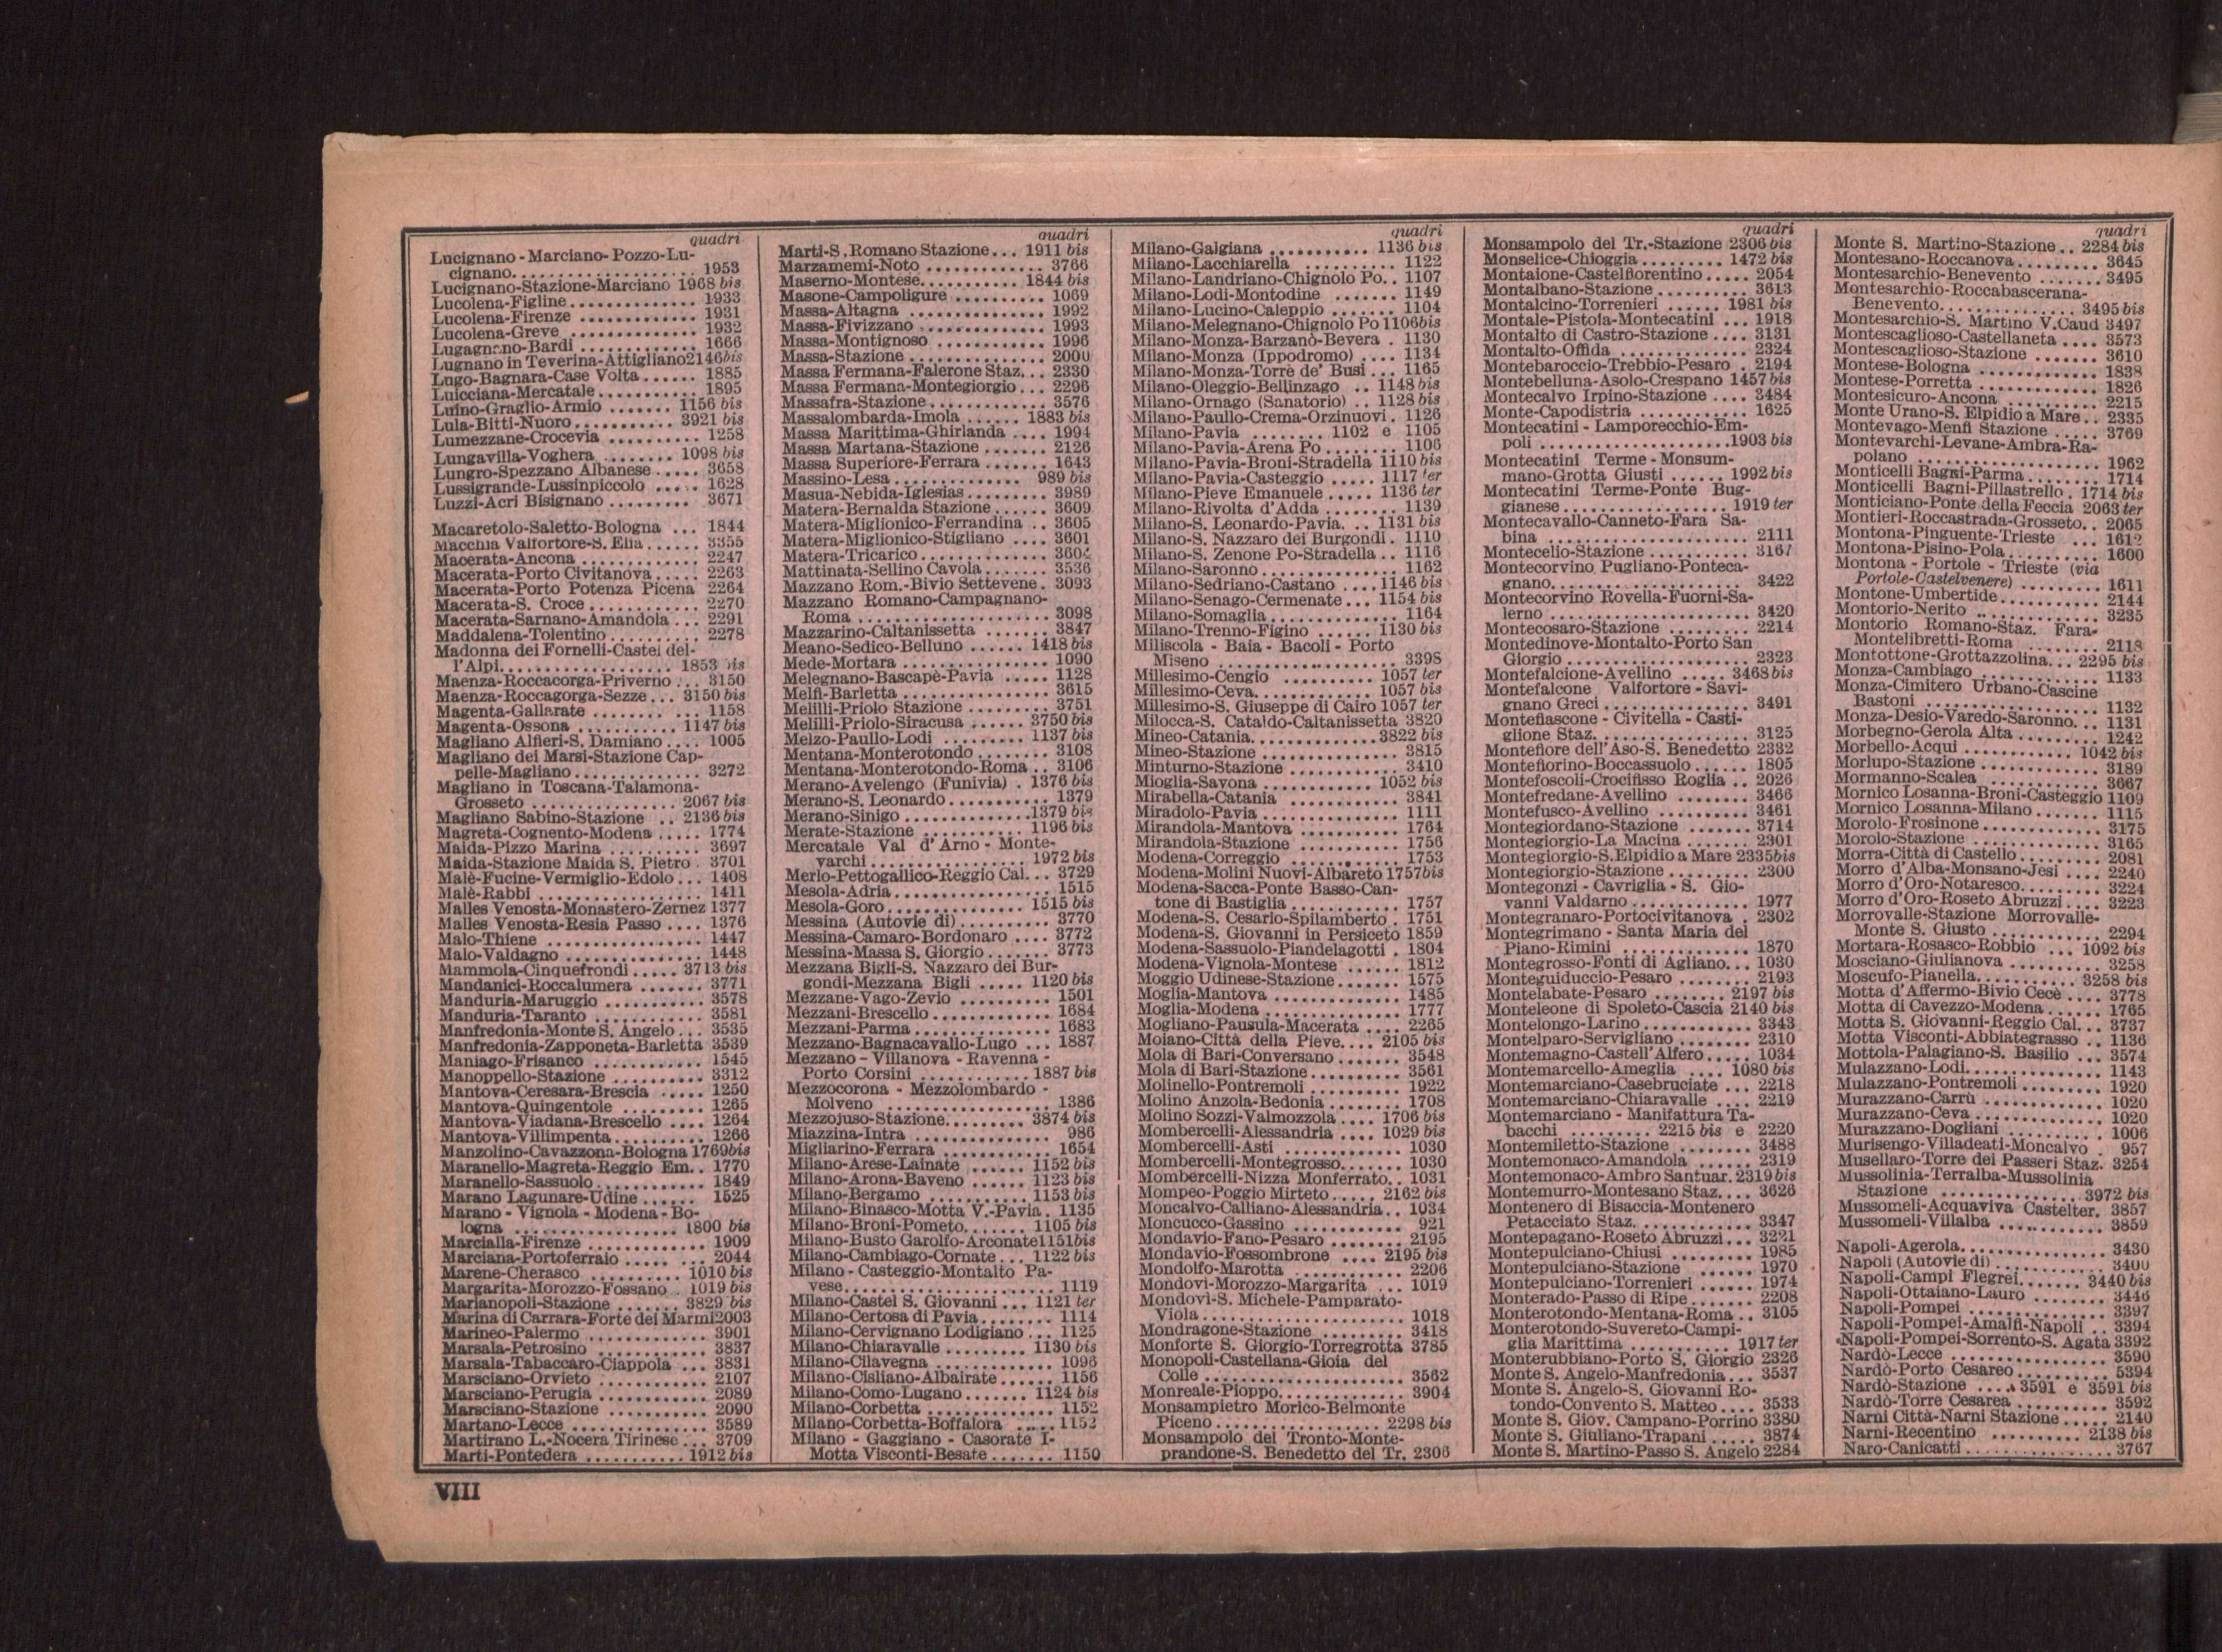 quadri
Lucignano - Marciano - Pozzo-Lu-
cignano.................... 1953
Lucignano-Stazione-Marciano 1968 bis
Lucolena-Figline............. 1933
Lucolena-Firenze ............ 1931
Lucolena-Greve ............. 1932
Lugagnano-Bardi ............ 1666
Lugnano in Teverina-Attigliano2146bis
Lugo-Bagnara-Case Volta...... 1885
Luicciana-Mercatale.......... 1895
Luino-Graglio-Armio ....... 1156 bis
Lula-Bitti-Nuoro........... 3921 bis
Lumezzane-Crocevia ......... 1258
Lungavilla-Voghera ........ 1098 bis
Lungro-Spezzano Albanese..... 3658
Lussigrande-Lussinpiccolo ..... 1628
Luzzi-Acri Bisignano ......... 3671
Macaretolo-Saletto-Bologna ... 1844
Macchia Valfortore-S. Elia...... 3355
Macerata-Ancona ............ 2247
Macerata-Porto Civitanova..... 2263
Macerata-Porto Potenza Picena 2264
Macerata-S. Croce............ 2270
Macerata-Sarnano-Amandola... 2291
Maddalena-Tolentino......... 2278
Madonna dei Fornelli-Castel del-
l'Alpi................... 1853 bis
Maenza-Roccacorga-Priverno... 3150
Maenza-Roccagorga-Sezze... 3150 bis
Magenta-Gallarate ........... 1158
Magenta-Ossona ........... 1147 bis
Magliano Alfieri-S. Damiano.... 1005
Magliano dei Marsi-Stazione Cap-
pelle-Magliano............. 3272
Magliano in Toscana-Talamona-
Grosseto ............... 2067 bis
Magliano Sabino-Stazione .. 2136 bis
Magreta-Cognento-Modena..... 1774
Maida-Pizzo Marina .......... 3697
Maida-Stazione Maida S. Pietro. 3701
Malè-Fucine-Vermiglio-Edolo... 1408
Malè-Rabbi ................. 1411
Malles Venosta-Monastero-Zernez 1377
Malles Venosta-Resia Passo .... 1376
Malo-Thiene ................ 1447
Malo-Valdagno .............. 1448
Mammola-Cinquefrondi..... 3713 bis
Mandanici-Roccalumera ....... 3771
Manduria-Maruggio .......... 3578
Manduria-Taranto ........... 3581
Manfredonia-Monte S. Angelo... 3535
Manfredonia-Zapponeta-Barletta 3539
Maniago-Frisanco ............ 1545
Manoppello-Stazione ......... 3312
Mantova-Ceresara-Brescia ..... 1250
Mantova-Quingentole ......... 1265
Mantova-Viadana-Brescello .... 1264
Mantova-Villimpenta.......... 1266
Manzolino-Cavazzona-Bologna 1769bis
Maranello-Magreta-Reggio Em.. 1770
Maranello-Sassuolo............ 1849
Marano Lagunare-Udine...... 1525
Marano - Vignola - Modena - Bo-
logna ................ 1800 bis
Marcialla-Firenze ............ 1909
Marciana-Portoferraio ........ 2044
Marene-Cherasco ......... 1010 bis
Margarita-Morozzo-Fossano.. 1019 bis
Marianopoli-Stazione ....... 3829 bis
Marina di Carrara-Forte dei Marmi2003
Marineo-Palermo ............ 3901
Marsala-Petrosino ........... 3837
Marsala-Tabaccaro-Ciappola ... 3831
Marsciano-Orvieto ........... 2107
Marsciano-Perugia ........... 2089
Marsciano-Stazione .......... 2090
Martano-Lecce............... 3589
Martirano L.-Nocera Tirinese... 3709
Marti-Pontedera .......... 1912 bis
quadri
Marti-S. Romano Stazione... 1911 bis
Marzamemi-Noto ............ 3766
Maserno-Montese........... 1844 bis
Masone-Campoligure ......... 1069
Massa-Altagna .............. 1992
Massa-Fivizzano ............. 1993
Massa-Montignoso ........... 1996
Massa-Stazione .............. 2000
Massa Fermana-Falerone Staz... 2330
Massa Fermana-Montegiorgio... 2296
Massafra-Stazione............ 3576
Massalombarda-Imola ...... 1883 bis
Massa Marittima-Ghirlanda .... 1994
Massa Martana-Stazione ...... 2126
Massa Superiore-Ferrara....... 1643
Massino-Lesa.............. 989 bis
Masua-Nebida-Iglesias......... 3989
Matera-Bernalda Stazione...... 3609
Matera-Miglionico-Ferrandina .. 3605
Matera-Miglionico-Stigliano .... 3601
Matera-Tricarico.............. 3602
Mattinata-Sellino Cavola....... 3536
Mazzano Rom.-Bivio Settevene. 3093
Mazzano Romano-Campagnano-
Roma .................... 3098
Mazzarino-Caltanissetta ....... 3847
Meano-Sedico-Belluno ...... 1418 bis
Mede-Mortara ............... 1090
Melegnano-Bascapè-Pavia ..... 1128
Melfi-Barletta ............... 3615
Melilli-Priolo Stazione ......... 3751
Melilli-Priolo-Siracusa ...... 3750 bis
Melzo-Paullo-Lodi ......... 1137 bis
Mentana-Monterotondo....... 3108
Mentana-Monterotondo-Roma .. 3106
Merano-Avelengo (Funivia) . 1376 bis
Merano-S. Leonardo........... 1379
Merano-Sinigo .............1379 bis
Merate-Stazione .......... 1196 bis
Mercatale Val d'Arno - Monte-
varchi ................ 1972 bis
Merlo-Pettogallico-Reggio Cal... 3729
Mesola-Adria................ 1515
Mesola-Goro.............. 1515 bis
Messina (Autovie di).......... 3770
Messina-Camaro-Bordonaro .... 3772
Messina-Massa S. Giorgio....... 3773
Mezzana Bigli-S. Nazzaro dei Bur-
gondi-Mezzana Bigli ..... 1120 bis
Mezzane-Vago-Zevio ......... 1501
Mezzani-Brescello............. 1684
Mezzani-Parma.............. 1683
Mezzano-Bagnacavallo-Lugo ... 1887
Mezzano - Villanova - Ravenna -
Porto Corsini ........... 1887 bis
Mezzocorona - Mezzolombardo -
Molveno .................. 1386
Mezzojuso-Stazione......... 3874 bis
Miazzina-Intra .............. 986
Migliarino-Ferrara ............ 1654
Milano-Arese-Lainate ...... 1152 bis
Milano-Arona-Baveno ...... 1123 bis
Milano-Bergamo ........... 1153 bis
Milano-Binasco-Motta V.-Pavia. 1135
Milano-Broni-Pometo....... 1105 bis
Milano-Busto Garolfo-Arconate1151bis
Milano-Cambiago-Cornate... 1122 bis
Milano - Casteggio-Montalto Pa-
vese...................... 1119
Milano-Castel S. Giovanni ... 1121 ter
Milano-Certosa di Pavia........ 1114
Milano-Cervignano Lodigiano... 1125
Milano-Chiaravalle ......... 1130 bis
Milano-Cilavegna ............ 1096
Milano-Cisliano-Albairate...... 1156
Milano-Como-Lugano....... 1124 bis
Milano-Corbetta.............. 1152
Milano-Corbetta-Boffalora ..... 1152
Milano - Gaggiano - Casorate I-
Motta Visconti-Besate....... 1150
quadri
Milano-Galgiana ........... 1136 bis
Milano-Lacchiarella .......... 1122
Milano-Landriano-Chignolo Po.. 1107
Milano-Lodi-Montodine ....... 1149
Milano-Lucino-Caleppio ....... 1104
Milano-Melegnano-Chignolo Po1106bis
Milano-Monza-Barzanò-Bevera . 1130
Milano-Monza (Ippodromo) .... 1134
Milano-Monza-Torrè de' Busi... 1165
Milano-Oleggio-Bellinzago .. 1148 bis
Milano-Ornago (Sanatorio) .. 1128 bis
Milano-Paullo-Crema-Orzinuovi. 1126
Milano-Pavia ........ 1102 e 1105
Milano-Pavia-Arena Po ........ 1106
Milano-Pavia-Broni-Stradella 1110 bis
Milano-Pavia-Casteggio ..... 1117 ter
Milano-Pieve Emanuele..... 1136 ter
Milano-Rivolta d'Adda ........ 1139
Milano-S. Leonardo-Pavia. .. 1131 bis
Milano-S. Nazzaro dei Burgondi. 1110
Milano-S. Zenone Po-Stradella.. 1116
Milano-Saronno.............. 1162
Milano-Sedriano-Castano.... 1146 bis
Milano-Senago-Cermenate... 1154 bis
Milano-Somaglia ............. 1164
Milano-Trenno-Figino ...... 1130 bis
Miliscola - Baia - Bacoli - Porto
Miseno ................... 3398
Millesimo-Cengio ......... 1057 ter
Millesimo-Ceva............ 1057 bis
Millesimo-S. Giuseppe di Cairo 1057 ter
Milocca-S. Cataldo-Caltanissetta 3820
Mineo-Catania.............3822 bis
Mineo-Stazione .............. 3815
Minturno-Stazione ........... 3410
Mioglia-Savona ........... 1052 bis
Mirabella-Catania ............ 3841
Miradolo-Pavia .............. 1111
Mirandola-Mantova .......... 1764
Mirandola-Stazione ........... 1756
Modena-Correggio ........... 1753
Modena-Molini Nuovi-Albareto 1757bis
Modena-Sacca-Ponte Basso-Can-
tone di Bastiglia............ 1757
Modena-S. Cesario-Spilamberto . 1751
Modena-S. Giovanni in Persiceto 1859
Modena-Sassuolo-Piandelagotti . 1804
Modena-Vignola-Montese ...... 1812
Moggio Udinese-Stazione....... 1575
Moglia-Mantova ............. 1485
Moglia-Modena .............. 1777
Mogliano-Pausula-Macerata .... 2265
Moiano-Città della Pieve.... 2105 bis
Mola di Bari-Conversano....... 3548
Mola di Bari-Stazione......... 3561
Molinello-Pontremoli .......... 1922
Molino Anzola-Bedonia........ 1708
Molino Sozzi-Valmozzola.... 1706 bis
Mombercelli-Alessandria .... 1029 bis
Mombercelli-Asti ............ 1030
Mombercelli-Montegrosso....... 1030
Mombercelli-Nizza Monferrato.. 1031
Mompeo-Poggio Mirteto..... 2162 bis
Moncalvo-Calliano-Alessandria.. 1034
Moncucco-Gassino ........... 921
Mondavio-Fano-Pesaro ........ 2195
Mondavio-Fossombrone .... 2195 bis
Mondolfo-Marotta ........... 2206
Mondovì-Morozzo-Margarita ... 1019
Mondovì-S. Michele-Pamparato-
Viola..................... 1018
Mondragone-Stazione ......... 3418
Monforte S. Giorgio-Torregrotta 3785
Monopoli-Castellana-Gioia del
Colle ..................... 3562
Monreale-Pioppo............. 3904
Monsampietro Morico-Belmonte
Piceno................. 2298 bis
Monsampolo del Tronto-Monte-
prandone-S. Benedetto del Tr. 2306
quadri
Monsampolo del Tr.-Stazione 2306 bis
Monselice-Chioggia ........ 1472 bis
Montaione-Castelfiorentino..... 2054
Montalbano-Stazione.......... 3613
Montalcino-Torrenieri ...... 1981 bis
Montale-Pistoia-Montecatini ... 1918
Montalto di Castro-Stazione.... 3131
Montalto-Offida .............. 2324
Montebaroccio-Trebbio-Pesaro . 2194
Montebelluna-Asolo-Crespano 1457 bis
Montecalvo Irpino-Stazione .... 3484
Monte-Capodistria ........... 1625
Montecatini - Lamporecchio-Em-
poli ....................1903 bis
Montecatini Terme - Monsum-
mano-Grotta Giusti ...... 1992 bis
Montecatini Terme-Ponte Bug-
gianese ................. 1919 ter
Montecavallo-Canneto-Fara Sa-
bina ..................... 2111
Montecelio-Stazione........... 3167
Montecorvino Pugliano-Ponteca-
gnano..................... 3422
Montecorvino Rovella-Fuorni-Sa-
lerno ..................... 3420
Montecosaro-Stazione ......... 2214
Montedinove-Montalto-Porto San
Giorgio.................... 2323
Montefalcione-Avellino ..... 3468 bis
Montefalcone Valfortore - Savi-
gnano Greci................ 3491
Montefiascone - Civitella - Casti-
glione Staz................. 3125
Montefiore dell'Aso-S. Benedetto 2332
Montefiorino-Boccassuolo...... 1805
Montefoscoli-Crocifisso Roglia .. 2026
Montefredane-Avellino ........ 3466
Montefusco-Avellino .......... 3461
Montegiordano-Stazione ....... 3714
Montegiorgio-La Macina....... 2301
Montegiorgio-S.Elpidio a Mare 2335bis
Montegiorgio-Stazione......... 2300
Montegonzi - Cavriglia - S. Gio-
vanni Valdarno............. 1977
Montegranaro-Portocivitanova . 2302
Montegrimano - Santa Maria del
Piano-Rimini .............. 1870
Montegrosso-Fonti di Agliano... 1030
Monteguiduccio-Pesaro ........ 2193
Montelabate-Pesaro ........ 2197 bis
Monteleone di Spoleto-Cascia 2140 bis
Montelongo-Larino............ 3343
Montelparo-Servigliano ........ 2310
Montemagno-Castell'Alfero..... 1034
Montemarcello-Ameglia .... 1080 bis
Montemarciano-Casebruciate ... 2218
Montemarciano-Chiaravalle .... 2219
Montemarciano - Manifattura Ta-
bacchi ........ 2215 bis e 2220
Montemiletto-Stazione ........ 3488
Montemonaco-Amandola ...... 2319
Montemonaco-Ambro Santuar. 2319 bis
Montemurro-Montesano Staz.... 3626
Montenero di Bisaccia-Montenero
Petacciato Staz. ............ 3347
Montepagano-Roseto Abruzzi... 3221
Montepulciano-Chiusi ......... 1985
Montepulciano-Stazione ...... 1970
Montepulciano-Torrenieri ...... 1974
Monterado-Passo di Ripe....... 2208
Monterotondo-Mentana-Roma.. 3105
Monterotondo-Suvereto-Campi-
glia Marittima ........... 1917 ter
Monterubbiano-Porto S. Giorgio 2326
Monte S. Angelo-Manfredonia... 3537
Monte S. Angelo-S. Giovanni Ro-
tondo-Convento S. Matteo.... 3533
Monte S. Giov. Campano-Porrino 3380
Monte S. Giuliano-Trapani..... 3874
Monte S. Martino-Passo S. Angelo 2284
quadri
Monte S. Martino-Stazione.. 2284 bis
Montesano-Roccanova......... 3645
Montesarchio-Benevento ....... 3495
Montesarchio-Roccabascerana-
Benevento............... 3495 bis
Montesarchio-S. Martino V.Caud 3497
Montescaglioso-Castellaneta.... 3573
Montescaglioso-Stazione ....... 3610
Montese-Bologna ............. 1838
Montese-Porretta ............. 1826
Montesicuro-Ancona .......... 2215
Monte Urano-S. Elpidio a Mare.. 2335
Montevago-Menfi Stazione ..... 3769
Montevarchi-Levane-Ambra-Ra-
polano ................... 1962
Monticelli Bagni-Parma........ 1714
Monticelli Bagni-Pillastrello . 1714 bis
Monticiano-Ponte della Feccia 2063 ter
Montieri-Roccastrada-Grosseto.. 2065
Montona-Pinguente-Trieste ... 1612
Montona-Pisino-Pola.......... 1600
Montona - Portole - Trieste (via
Portole-Castelvenere) ......... 1611
Montone-Umbertide........... 2144
Montorio-Nerito ............. 3235
Montorio Romano-Staz. Fara-
Montelibretti-Roma ......... 2118
Montottone-Grottazzolina... 2295 bis
Monza-Cambiago ............ 1133
Monza-Cimitero Urbano-Cascine
Bastoni .................. 1132
Monza-Desio-Varedo-Saronno... 1131
Morbegno-Gerola Alta......... 1242
Morbello-Acqui ............ 1042 bis
Morlupo-Stazione ............ 3189
Mormanno-Scalea ............ 3667
Mornico Losanna-Broni-Casteggio 1109
Mornico Losanna-Milano ....... 1115
Morolo-Frosinone............. 3175
Morolo-Stazione ............. 3165
Morra-Città di Castello......... 2081
Morro d'Alba-Monsano-Jesi .... 2240
Morro d'Oro-Notaresco........ 3224
Morro d'Oro-Roseto Abruzzi.... 3223
Morrovalle-Stazione Morrovalle-
Monte S. Giusto ............ 2294
Mortara-Rosasco-Robbio ... 1092 bis
Mosciano-Giulianova .......... 3258
Moscufo-Pianella........... 3258 bis
Motta d'Affermo-Bivio Cecè .... 3778
Motta di Cavezzo-Modena...... 1765
Motta S. Giovanni-Reggio Cal... 3737
Motta Visconti-Abbiategrasso .. 1136
Mottola-Palagiano-S. Basilio ... 3574
Mulazzano-Lodi.............. 1143
Mulazzano-Pontremoli ......... 1920
Murazzano-Carrù ............ 1020
Murazzano-Ceva ............. 1020
Murazzano-Dogliani .......... 1006
Murisengo-Villadeati-Moncalvo . 957
Musellaro-Torre dei Passeri Staz. 3254
Mussolinia-Terralba-Mussolinia
Stazione ............... 3972 bis
Mussomeli-Acquaviva Castelter. 3857
Mussomeli-Villalba ........... 3859
Napoli-Agerola............... 3430
Napoli (Autovie di) ........... 3400
Napoli-Campi Flegrei....... 3440 bis
Napoli-Ottaiano-Lauro ........ 3446
Napoli-Pompei .............. 3397
Napoli-Pompei-Amalfi-Napoli .. 3394
Napoli-Pompei-Sorrento-S. Agata 3392
Nardò-Lecce ................ 3590
Nardò-Porto Cesareo.......... 5394
Nardò-Stazione .....3591 e 3591 bis
Nardò-Torre Cesarea .......... 3592
Narni Città-Narni Stazione..... 2140
Narni-Recentino .......... 2138 bis
Naro-Canicattì............... 3767
VIII